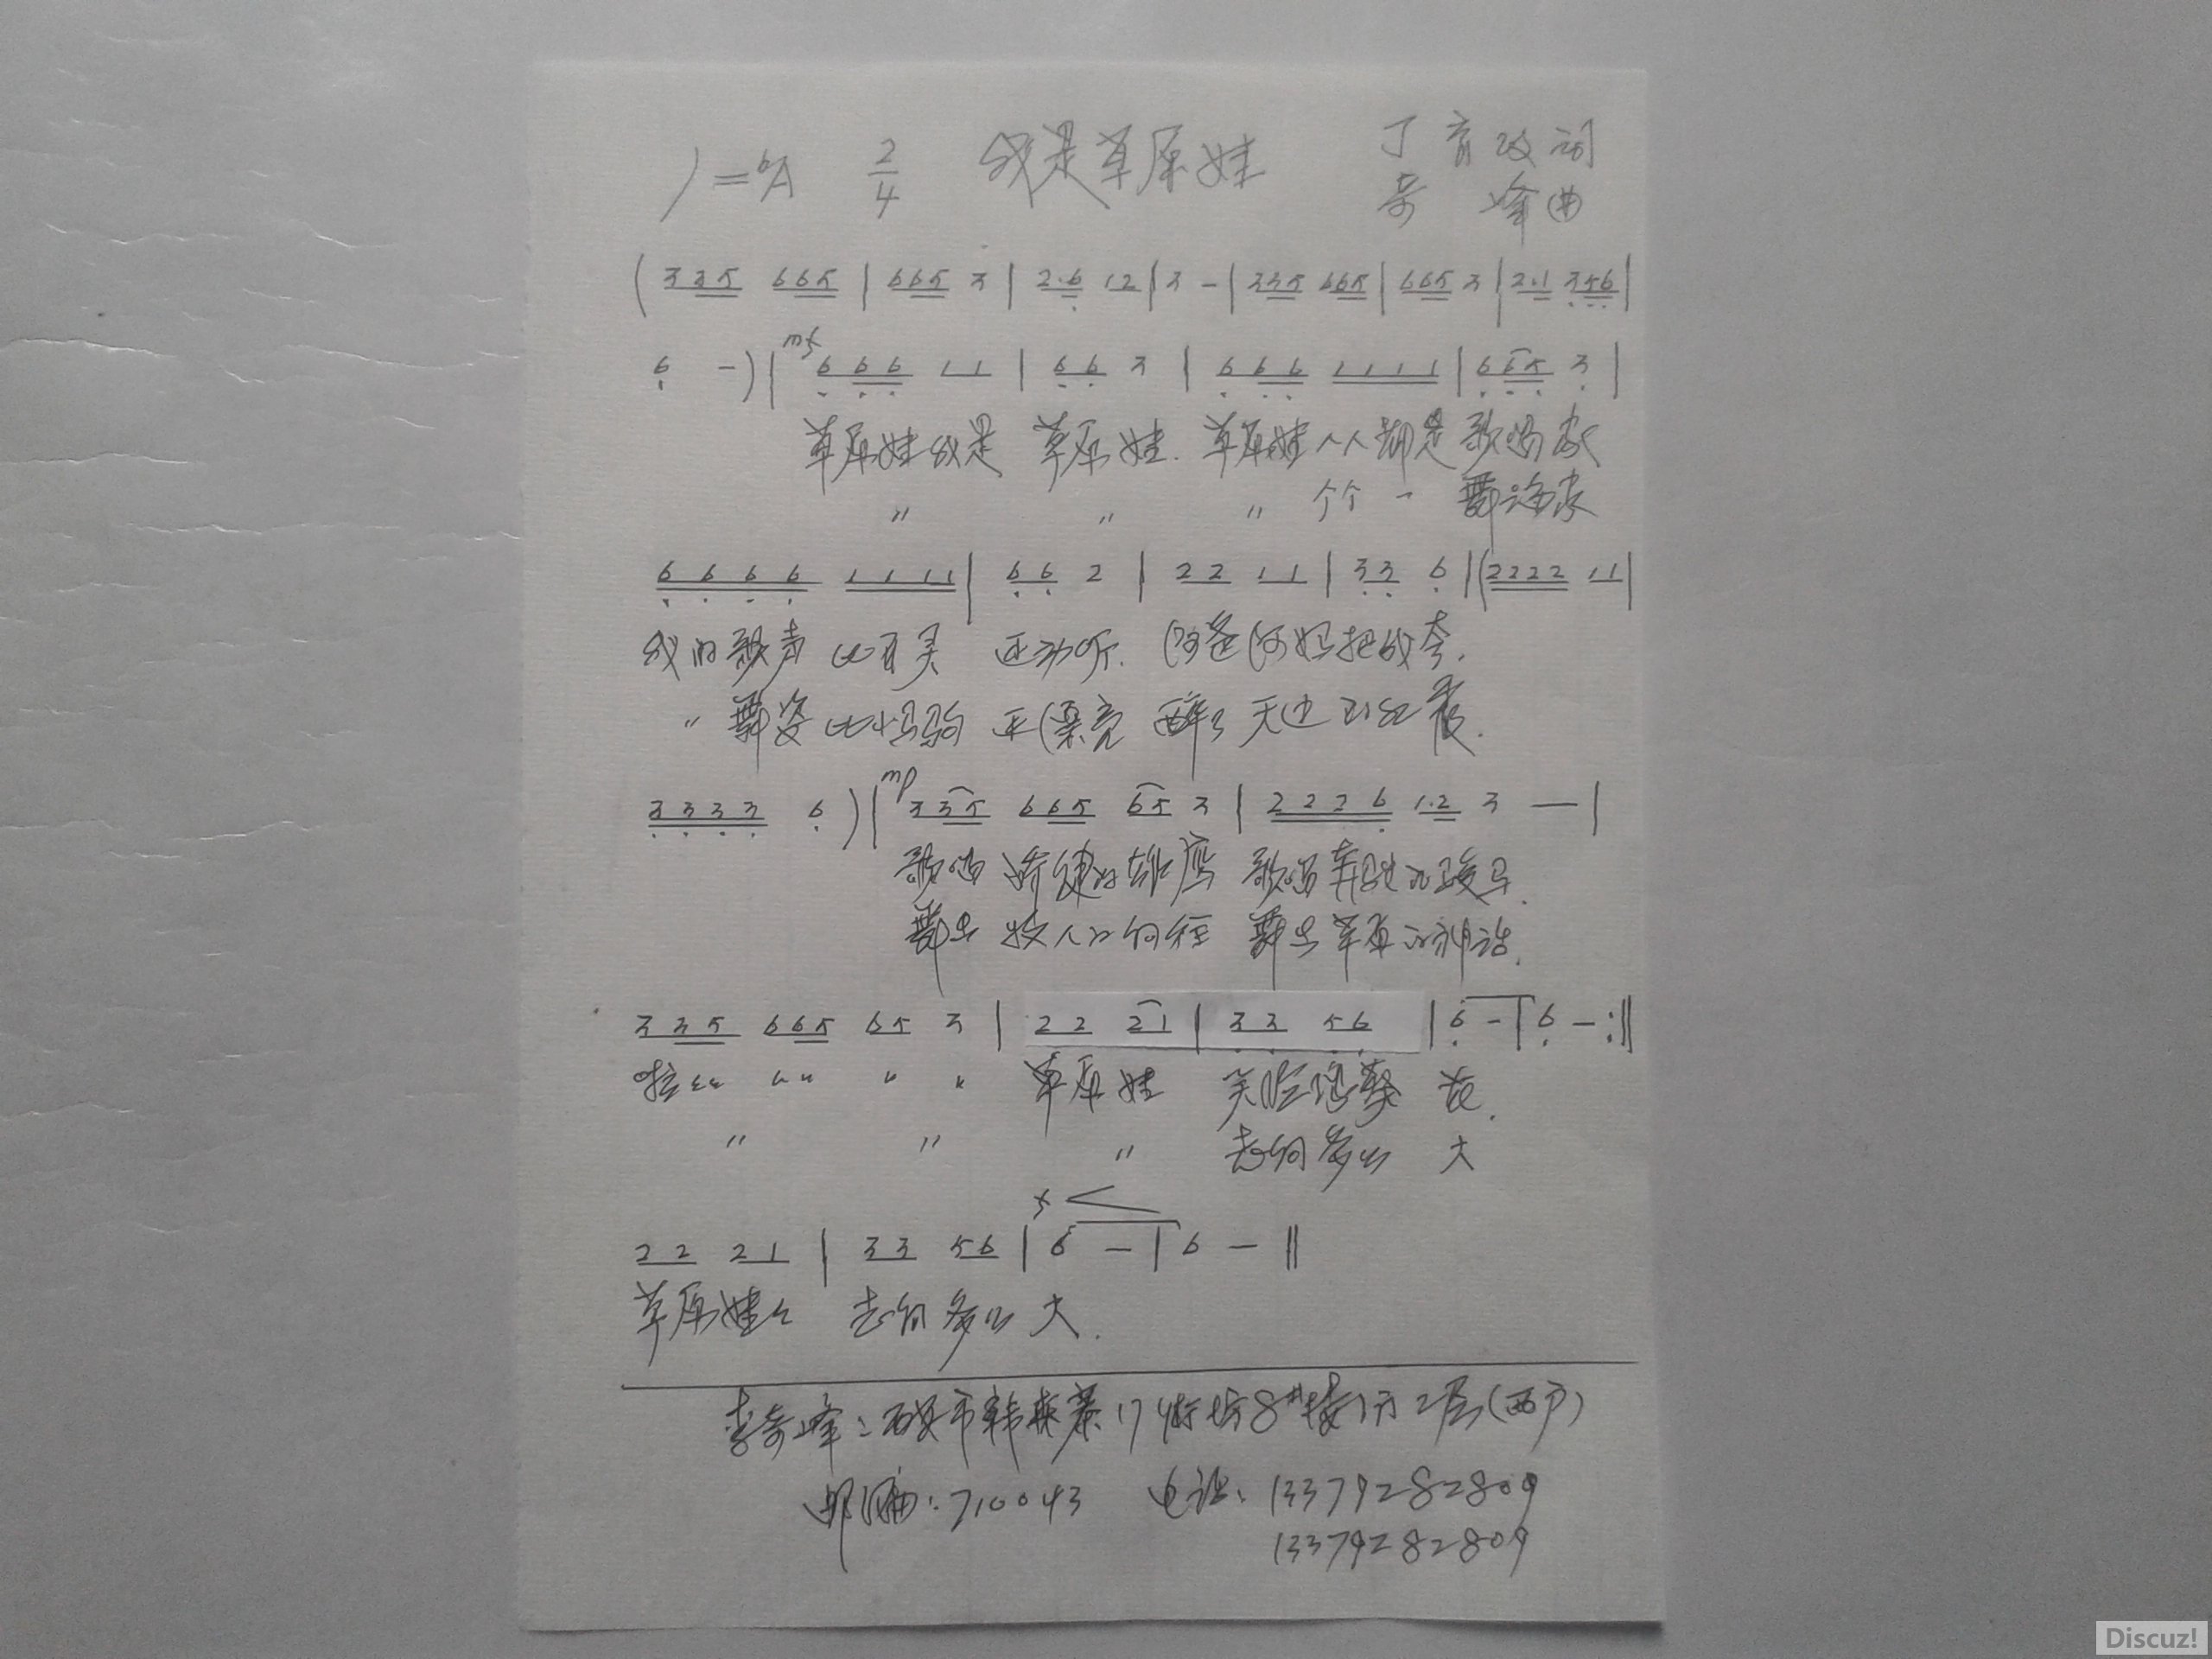 1=♭A 2/4 我是草原娃 丁育政词
奇峰曲
(3 3 5 6 6 5 | 6 6 5 3 | 2·6 1 2 | 3 - | 3 3 5 6 6 5 | 6 6 5 3 | 2·1 3 5 6 |
6 -) | mf 6 6 6 1 1 | 6 6 3 | 6 6 6 1 1 1 1 | 6 6 5 3 |
草原娃我是 草原娃. 草原娃人人都是歌唱家
〃 〃 〃 个个 - 舞蹈家
6 6 6 6 1 1 1 1 | 6 6 2 | 2 2 1 1 | 3 3 6 | (2 2 2 2 1 1 |
我的歌声比百灵 还动听. 阿爸阿妈把我夸.
〃 舞姿比小马驹 还漂亮 醉了天边的红霞.
3 3 3 3 6) | mp 3 3 5 6 6 5 6 5 3 | 2 2 2 6 1·2 3 — |
歌唱矫健的雄鹰 歌唱奔驰的骏马.
舞出牧人的 舞出草原的神话.
3 3 5 6 6 5 6 5 3 | 2 2 2 1 | 3 3 5 6 | 6 - | 6 - :‖
啦 〃 〃 〃 〃 草原娃 笑脸 花.
〃 〃 〃 志向多么 大
f <
2 2 2 1 | 3 3 5 6 | 6 — | 6 — ‖
草原娃々 志向多么大.
李奇峰:西安市韩森寨17街坊8#楼1门2层(西户)
邮编:710043 电话:13379282809
13379282809
Discuz!